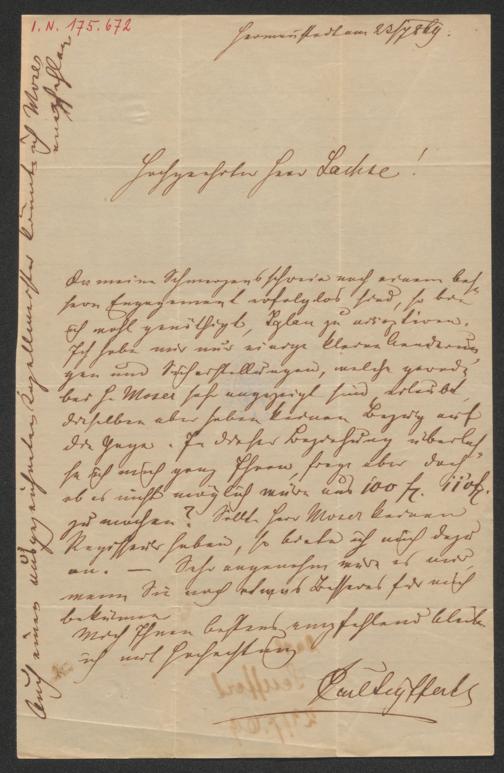 I. N. 175.672
Hermannstadt am 23/7 869.
Hochgeehrter Herr Sachse!
Da meine Schmerzensschreie nach einem bes-
sern Engagement erfolglos sind, so bin
ich wohl genöthigt, Iglau zu acceptiren.
Ich habe mir nur einige kleine Aenderun
gen und Sicherstellungen, welche gerade
bei H. Moser sehr angezeigt sind erlaubt,
dieselben aber haben keinen Bezug auf
die Gage. In dieser Beziehung überlas
se ich mich ganz Ihnen, frage aber doch
ob es nicht möglich wäre aus 100 fl. 110 fl.
zu machen? Sollte Herr Moser keinen
Regisseur haben, so biete ich mich dazu
an. — Sehr angenehm wäre es mir,
wenn Sie noch etwas Besseres für mich
bekämen
Mich Ihnen bestens empfehlend bleibe
ich mit Hochachtung
Carl Seyffert
Auch einen ausgezeichneten Kapellmeister könnte ich Moser
empfehlen